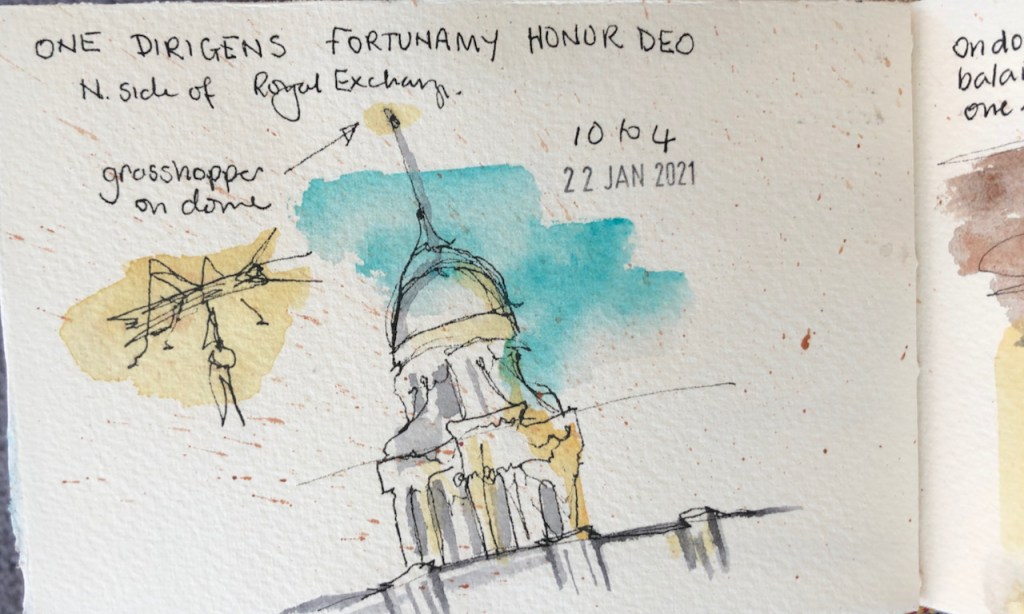 ONE DIRIGENS FORTUNAMY HONOR DEO
N. side of Royal Exchange.
10 to 4
22 JAN 2021
grasshopper
on dome
On do
balan
one.